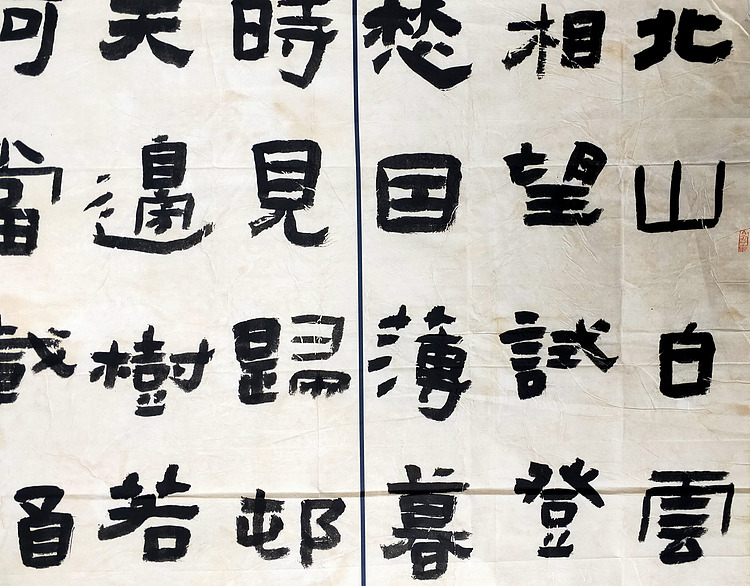 北山白雲
相望試登
愁因薄暮
時見歸邨
天邊樹若
何當載酒